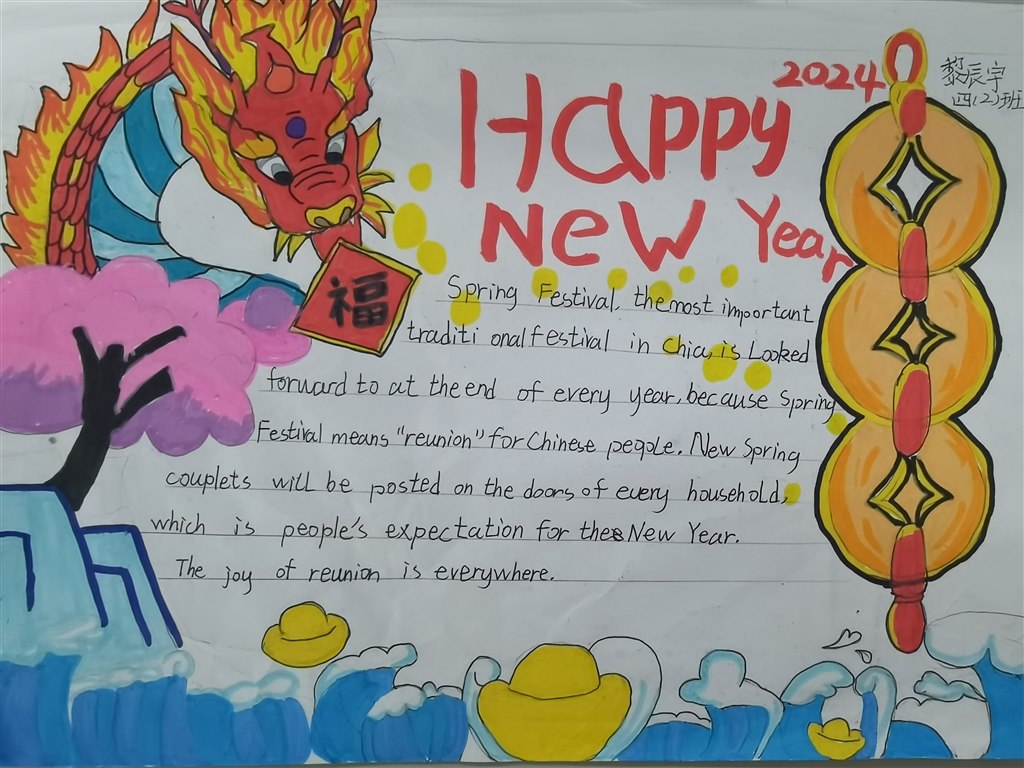 Happy 2024
黎辰宇
四(2)班
New Year
福
Spring Festival, the most important
traditi onal festival in Chia, is Looked
forward to at the end of every year, because Spring
Festival means "reunion" for Chinese peqple. New Spring
couplets will be posted on the doors of every household,
which is people's expectation for thes New Year.
The joy of reunion is everywhere.